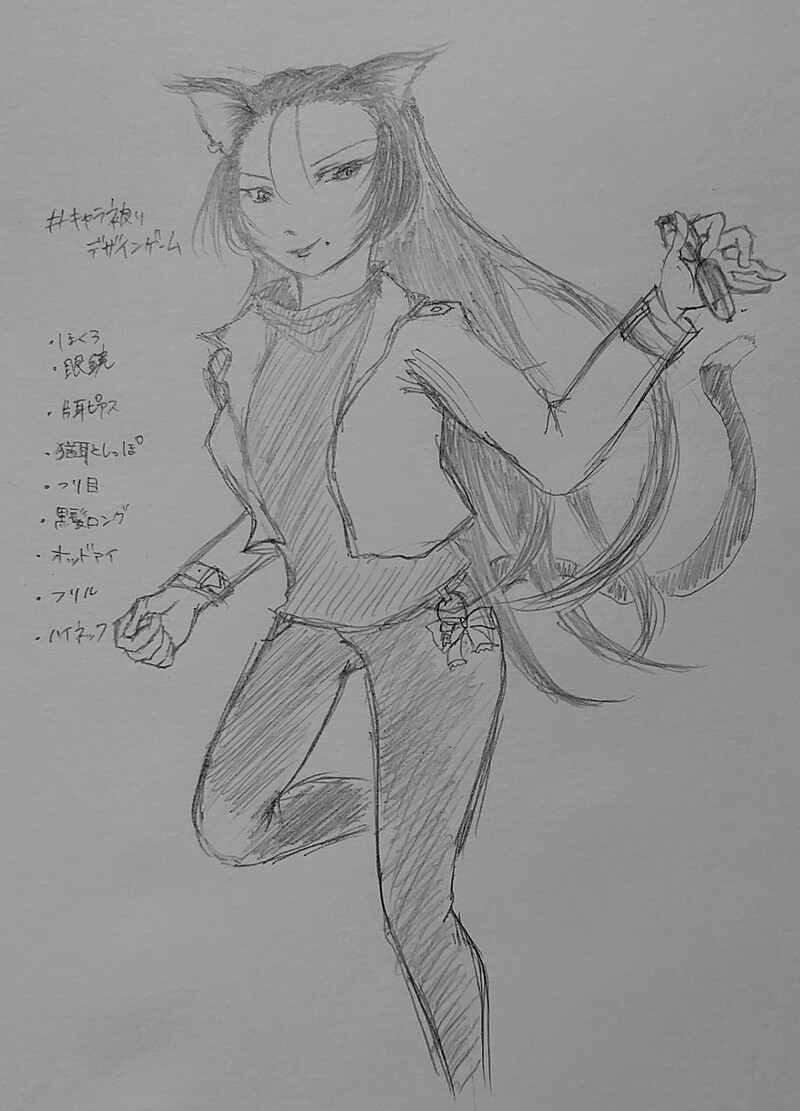 #キャラ被り
デザインゲーム
・ほくろ
・眼鏡
・片耳ピアス
・猫耳としっぽ
・つり目
・黒髪ロング
・オッドアイ
・フリル
・ハイネック